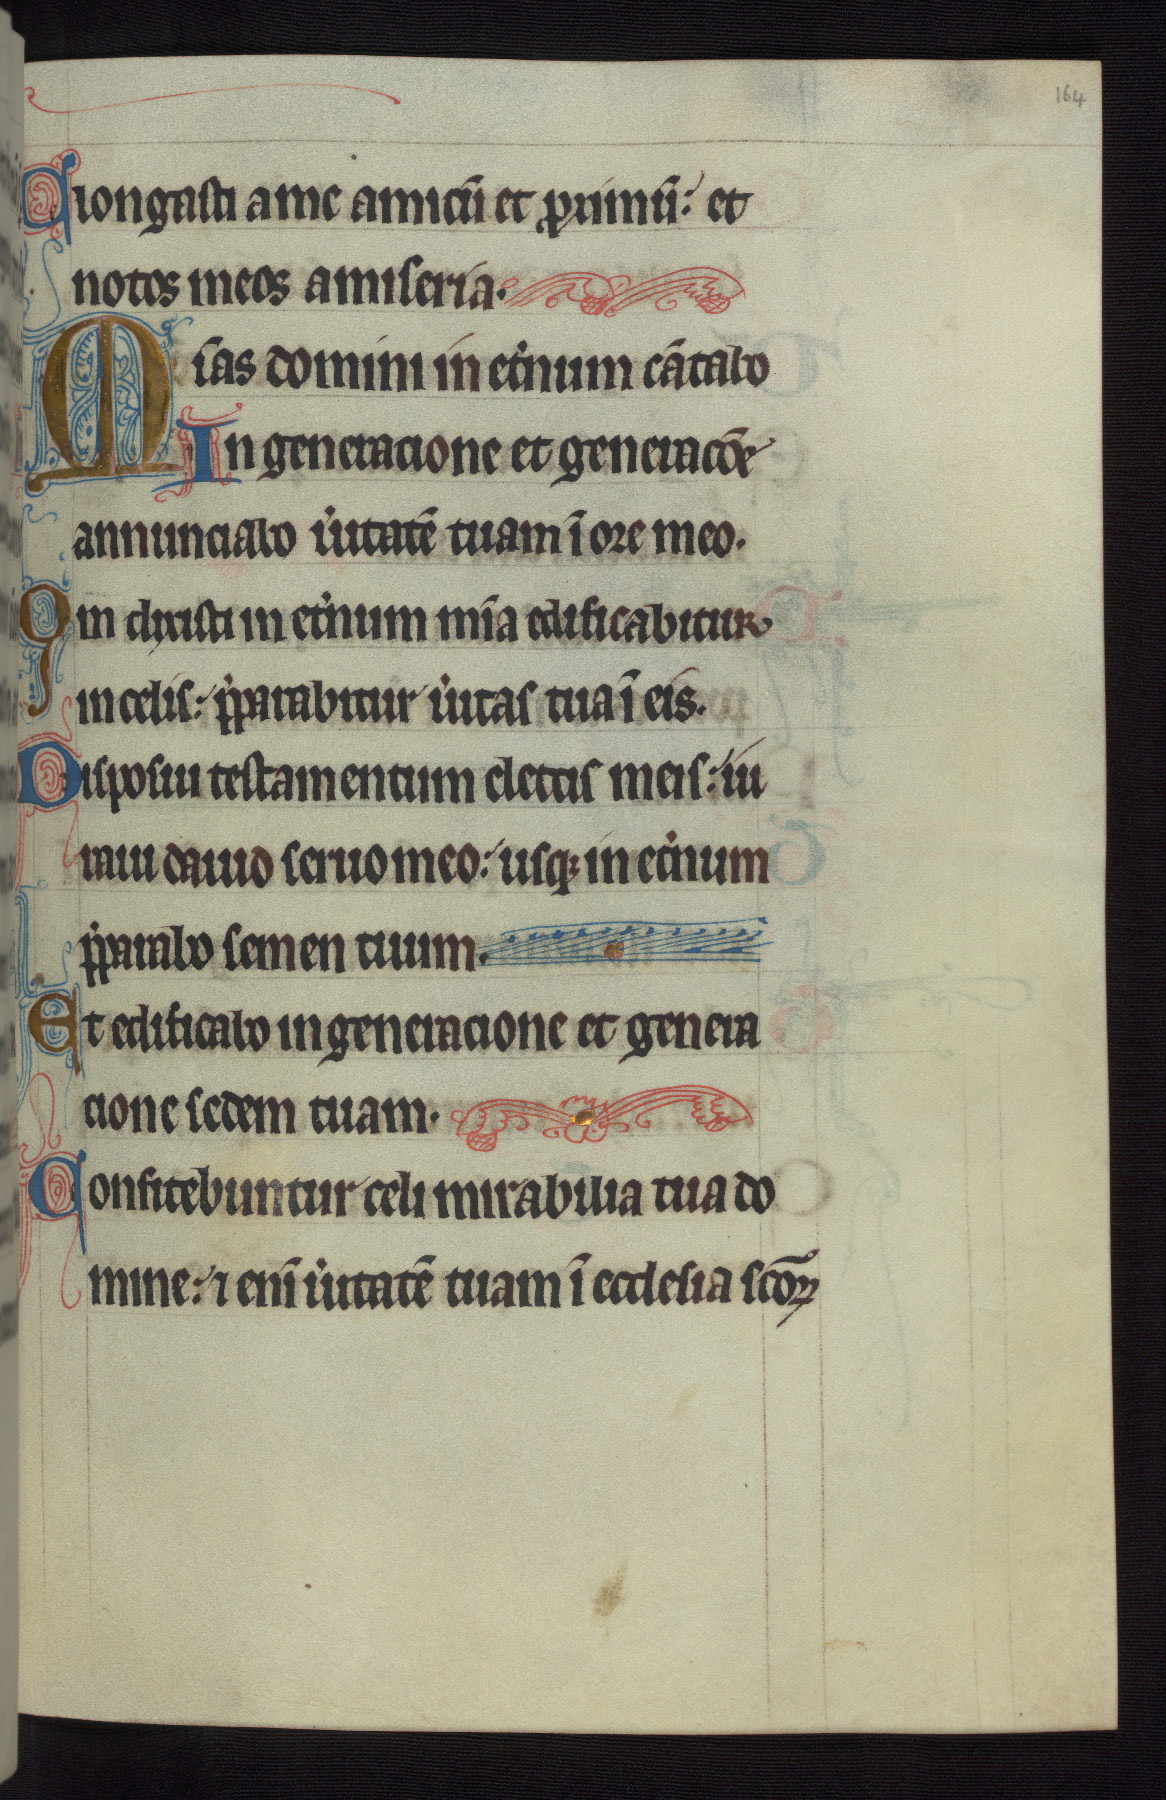 164
Elongasti a me amicū et ꝓximū: et
notos meos a miseria.
Mīas domini in et̾num cātabo
In generacione et generacōe
annunciabo ũitatē tuam ī ore meo.
Qm dixisti in et̾num mīa edificabitur
in celis: p̃parabitur ũitas tua ī eis.
Disposui testamentum electis meis: iu
raui dauid seruo meo: usq; in et̾num
p̃parabo semen tuum.
Et edificabo in generacione et genera
cione sedem tuam.
Confitebuntur celi mirabilia tua do
mine: ⁊ enī ũitatē tuam ī ecclesia scōꝝ